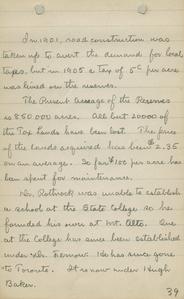 In 1901, road construction was
taken up to avert the demand for local
taxes, but in 1905 a tax of 5¢ per acre
was levied on the reserves.
The Present acreage of the Reserves
is 850 000 acres. All but 20000
of the Top Lands have been lost. The price
of the lands acquired has been $2.35
on an average. So far $1.00 per acre has
been spent for maintenance.
Dr. Rothrock was unable to establish
a school at the State College so he
founded his own at Mt. Alto. One
at the College has since been established
under Dr. Fernow. He has since gone
to Toronto. It is now under Hugh
Baker.
39